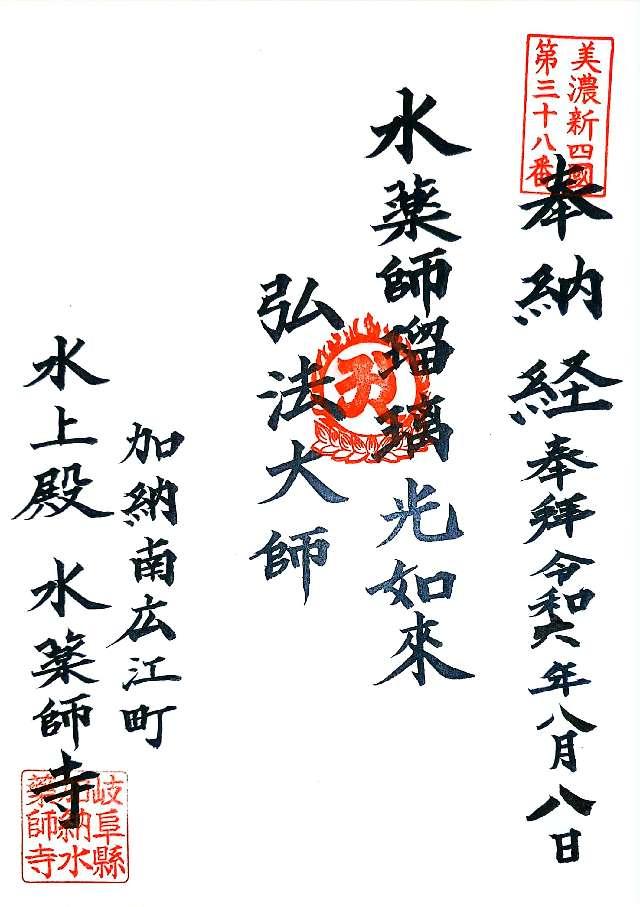 美濃新四國
第三十八番
奉納経 奉拜 令和六年八月八日
水薬師瑠璃光如來
弘法大師
加納南広江町
水上殿 水薬師寺
岐阜縣
加納水
薬師寺